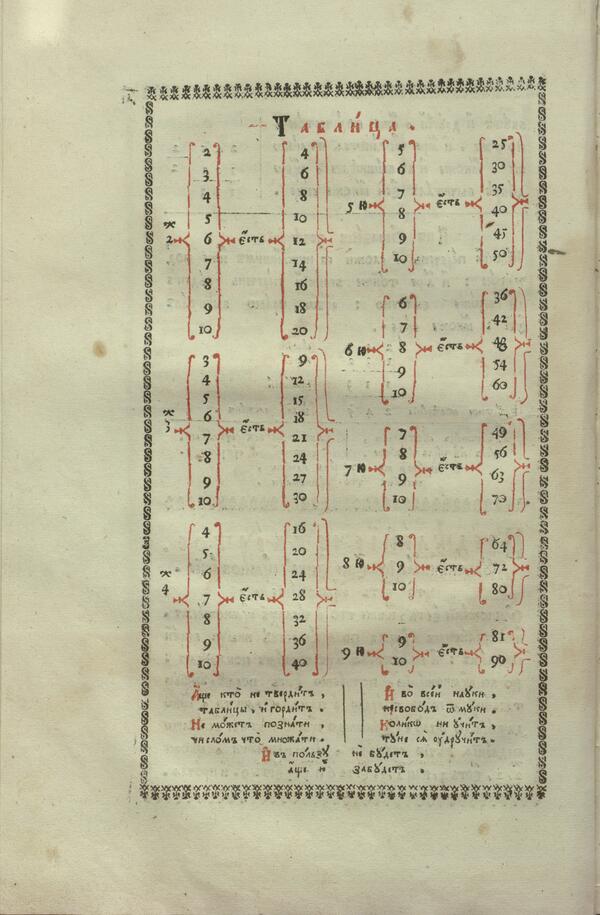 Таблица.
2
3
4
5
2ж 6 єсть
7
8
9
10
4
6
8
10
12
14
16
18
20
3
4
5
6
3ж єсть
7
8
9
10
9
12
15
18
21
24
27
30
4
5
6
4ж 7 єсть
8
9
10
16
20
24
28
32
36
40
5
6
7
5ю 8 єсть
9
10
25
30
35
40
45
50
6
7
6ю 8 єсть
9
10
36
42
48
54
60
7
8
7ю 9 єсть
10
49
56
63
70
8
8ю 9 єсть
10
64
72
80
9
9ю єсть
10
81
90
Аще кто не твердитъ,
таблицы, и гордитъ.
Не можетъ познати
числомъ что множати.
И во всей науки,
несвободъ ѿ муки
Колико ни учитъ,
туне сѧ удручитъ.
И въ пользу не будетъ,
аще ю забудетъ.